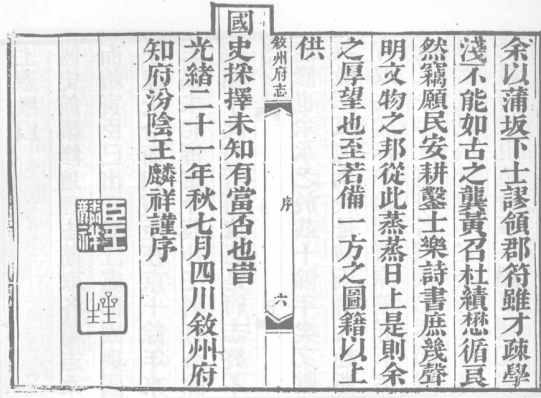 余以蒲坂下士謬領郡符雖才疎學
淺不能如古之龔黃召杜績懋循良
然竊願民安耕鑿士樂詩書庶幾聲
明文物之邦從此蒸蒸日上是則余
之厚望也至若備一方之圖籍以上
供
敘州府志
序
六
國史採擇未知有當否也旹
光緒二十一年秋七月四川敘州府
知府汾陰王麟祥謹序
臣王麟祥